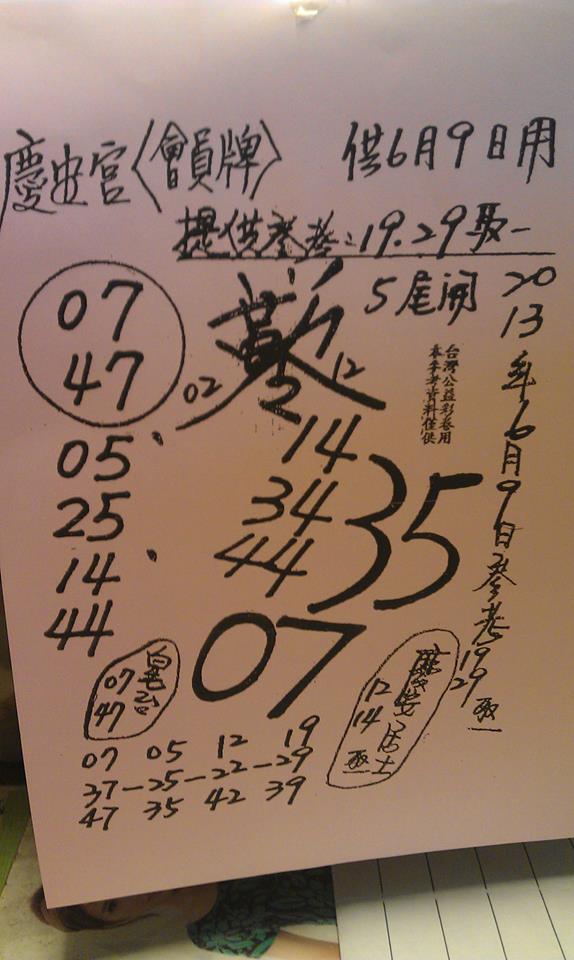 慶安宮〈會員牌〉 供6月9日用
提供參考:19.29取一
5尾開
07
47
02
12
2
05、
25
14、
44
14
34
44
35
07
台灣公益彩卷用
本參考資料僅供
2013年6月9日參考19 29 取一
07
47
慶安居士
12
14
取一
07 05 12 19
37-25-22-29
47 35 42 39